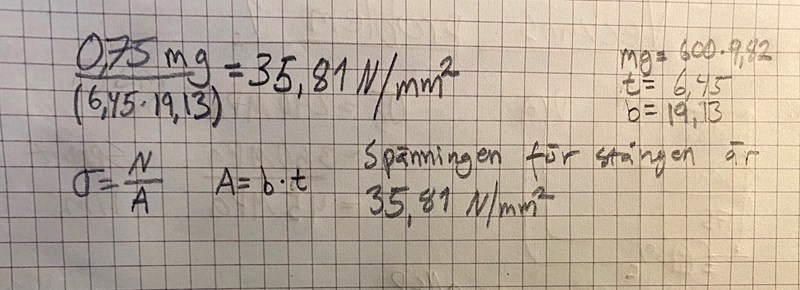 0,75 mg
(6,45·19,13) = 35,81 N/mm²
mg = 600·9,82
t = 6,45
b = 19,13
σ = N/A A = b·t
Spänningen för stången är
35,81 N/mm²